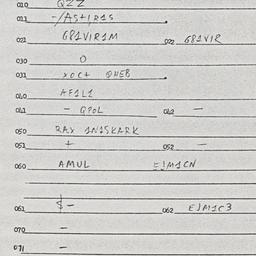 010 QZZ
011 -/AS+1R1S
021 G81VIR1M 022 G81VIR
030 O
031 XOC+ QHEB
040 AF1L1
041 - QPOL 042 -
050 RAX 1N1SKARK
051 + 052 -
060 AMUL EJM1CN
061 $- 062 EJM1C3
070 -
071 -